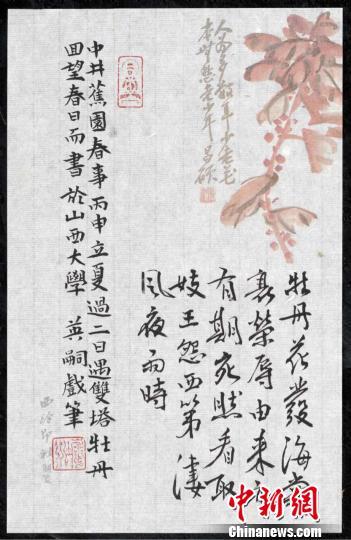 昌碩
牡丹花發海棠
衰榮辱由来
有期宛然看取
妓王怨西第淒
風夜雨時
中井蕉園春事丙申立夏過二日遇雙塔牡丹
回望春日而書於山西大學 英嗣戲筆
中新网
www.chinanews.com